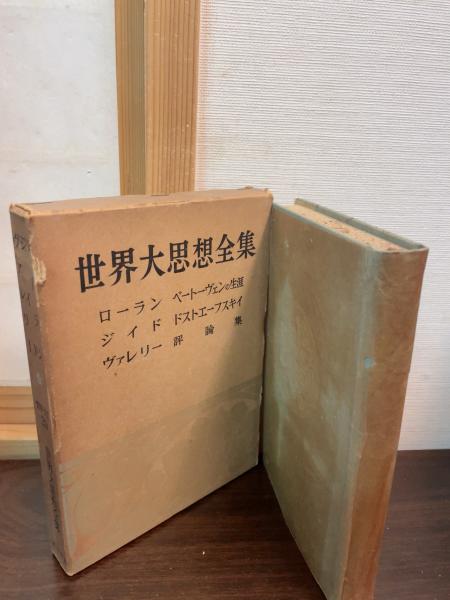 世界大思想全集
ローラン ベートーヴェンの生涯
ジイド ドストエーフスキイ
ヴァレリー 評論集